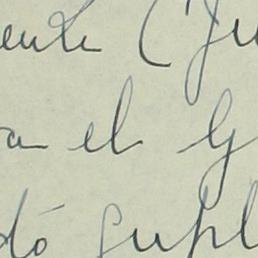 ente (Ju
a el G
dó supl